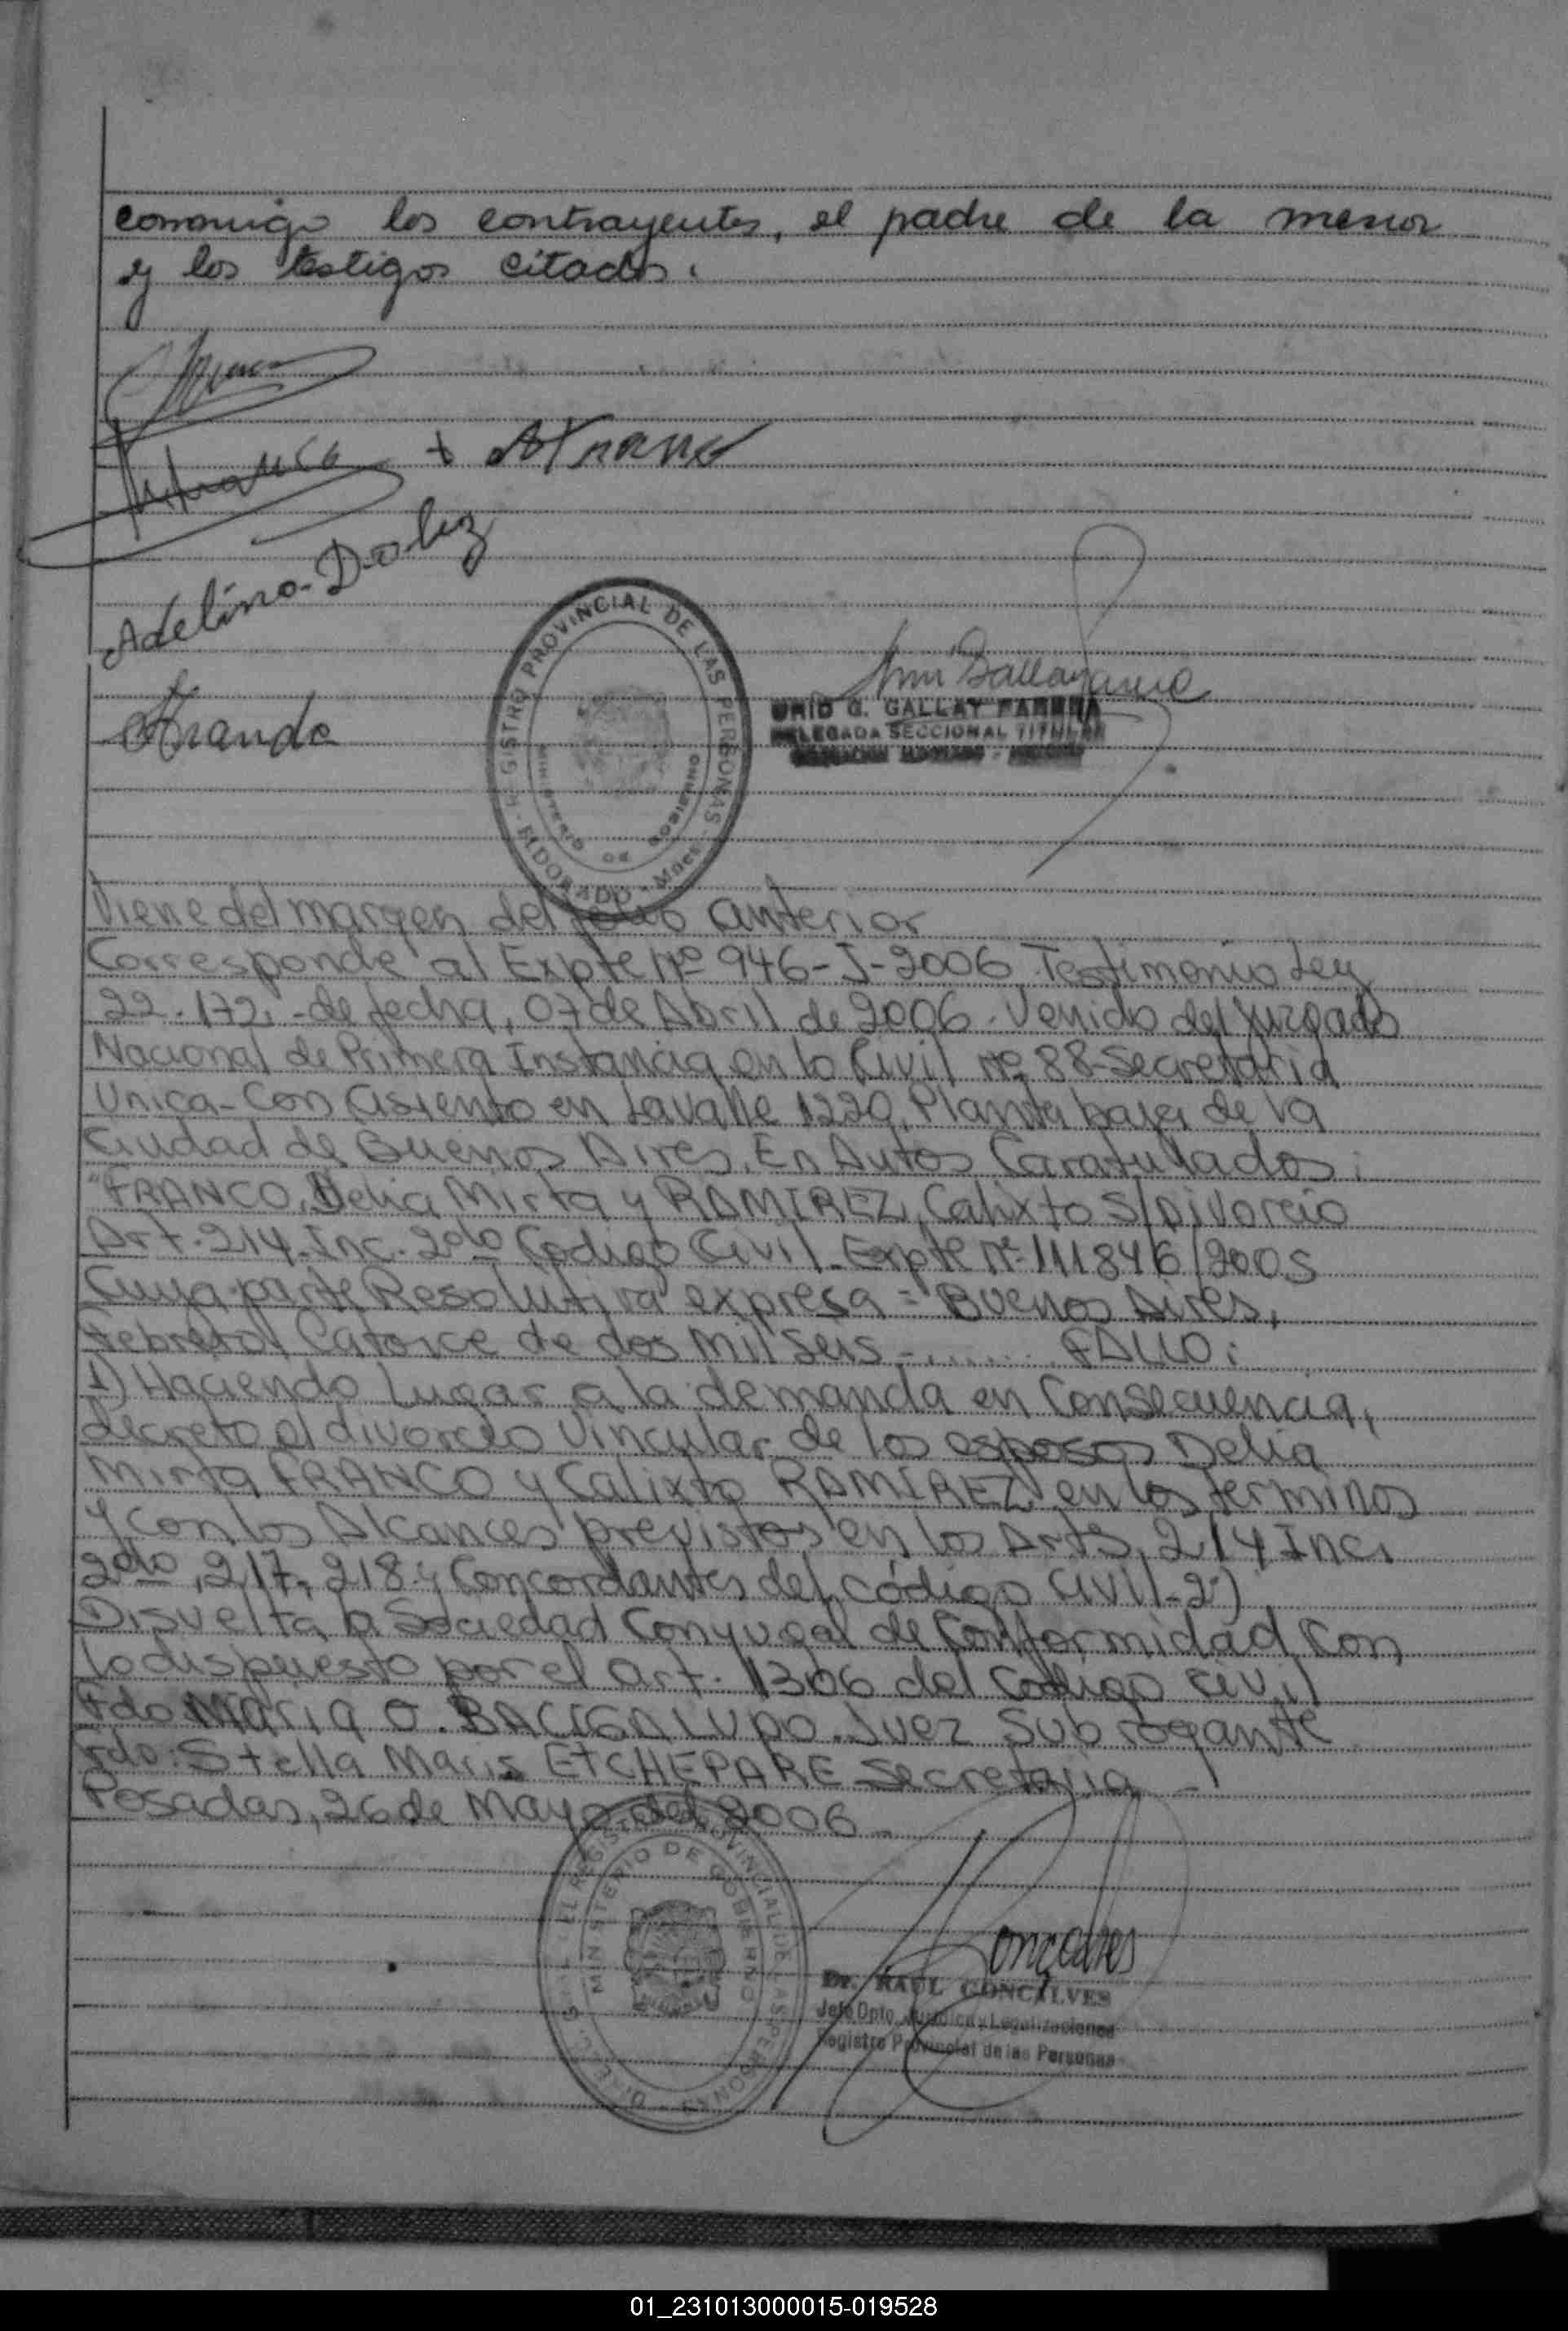 conmigo los contrayentes, el padre de la menor
y los testigos citados.
Adelino Do
REGISTRO PROVINCIAL DE LAS PERSONAS - Mnes - ELDORADO
MINISTERIO DE GOBIERNO
G. GALLAY PARERA
DELEGADA SECCIONAL TITULAR
Viene del margen del folio anterior
Corresponde al Expte Nº 946-J-2006 Testimonio Ley
22.172.- de fecha, 07 de Abril de 2006. Venido del Juzgado
Nacional de Primera Instancia en lo Civil nº 88-Secretaria
Unica-Con asiento en Lavalle 1220, Planta baja de la
Ciudad de Buenos Aires. En Autos Caratulados:
"FRANCO, Delia Mirta y RAMIREZ, Calixto S/Divorcio
Art. 214. Inc. 2do Codigo Civil. Expte Nº 111846/2005
Cuya parte Resolutiva expresa = Buenos Aires,
Febrero, Catorce de dos mil seis - ...... FALLO:
1) Haciendo Lugar a la demanda en Consecuencia,
decreto el divorcio Vincular de los esposos Delia
Mirta FRANCO y Calixto RAMIREZ en los terminos
y con los Alcances previstos en los Arts, 214 Inc.
2do, 217, 218 y Concordantes del código Civil-2º)
Disuelta la Sociedad Conyugal de Conformidad con
lo dispuesto por el art. 1306 del Codigo civil
Fdo Maria O. BACIGALUPO. Juez Subrogante
Fdo: Stella Maris ETCHEPARE Secretaria -
Posadas, 26 de Mayo del 2006 -
MINISTERIO DE GOBIERNO
Gonçalves
Dr. RAUL GONCALVES
Jefe Dpto. Juridico y Legalizaciones
Registro Provincial de las Personas
01_231013000015-019528